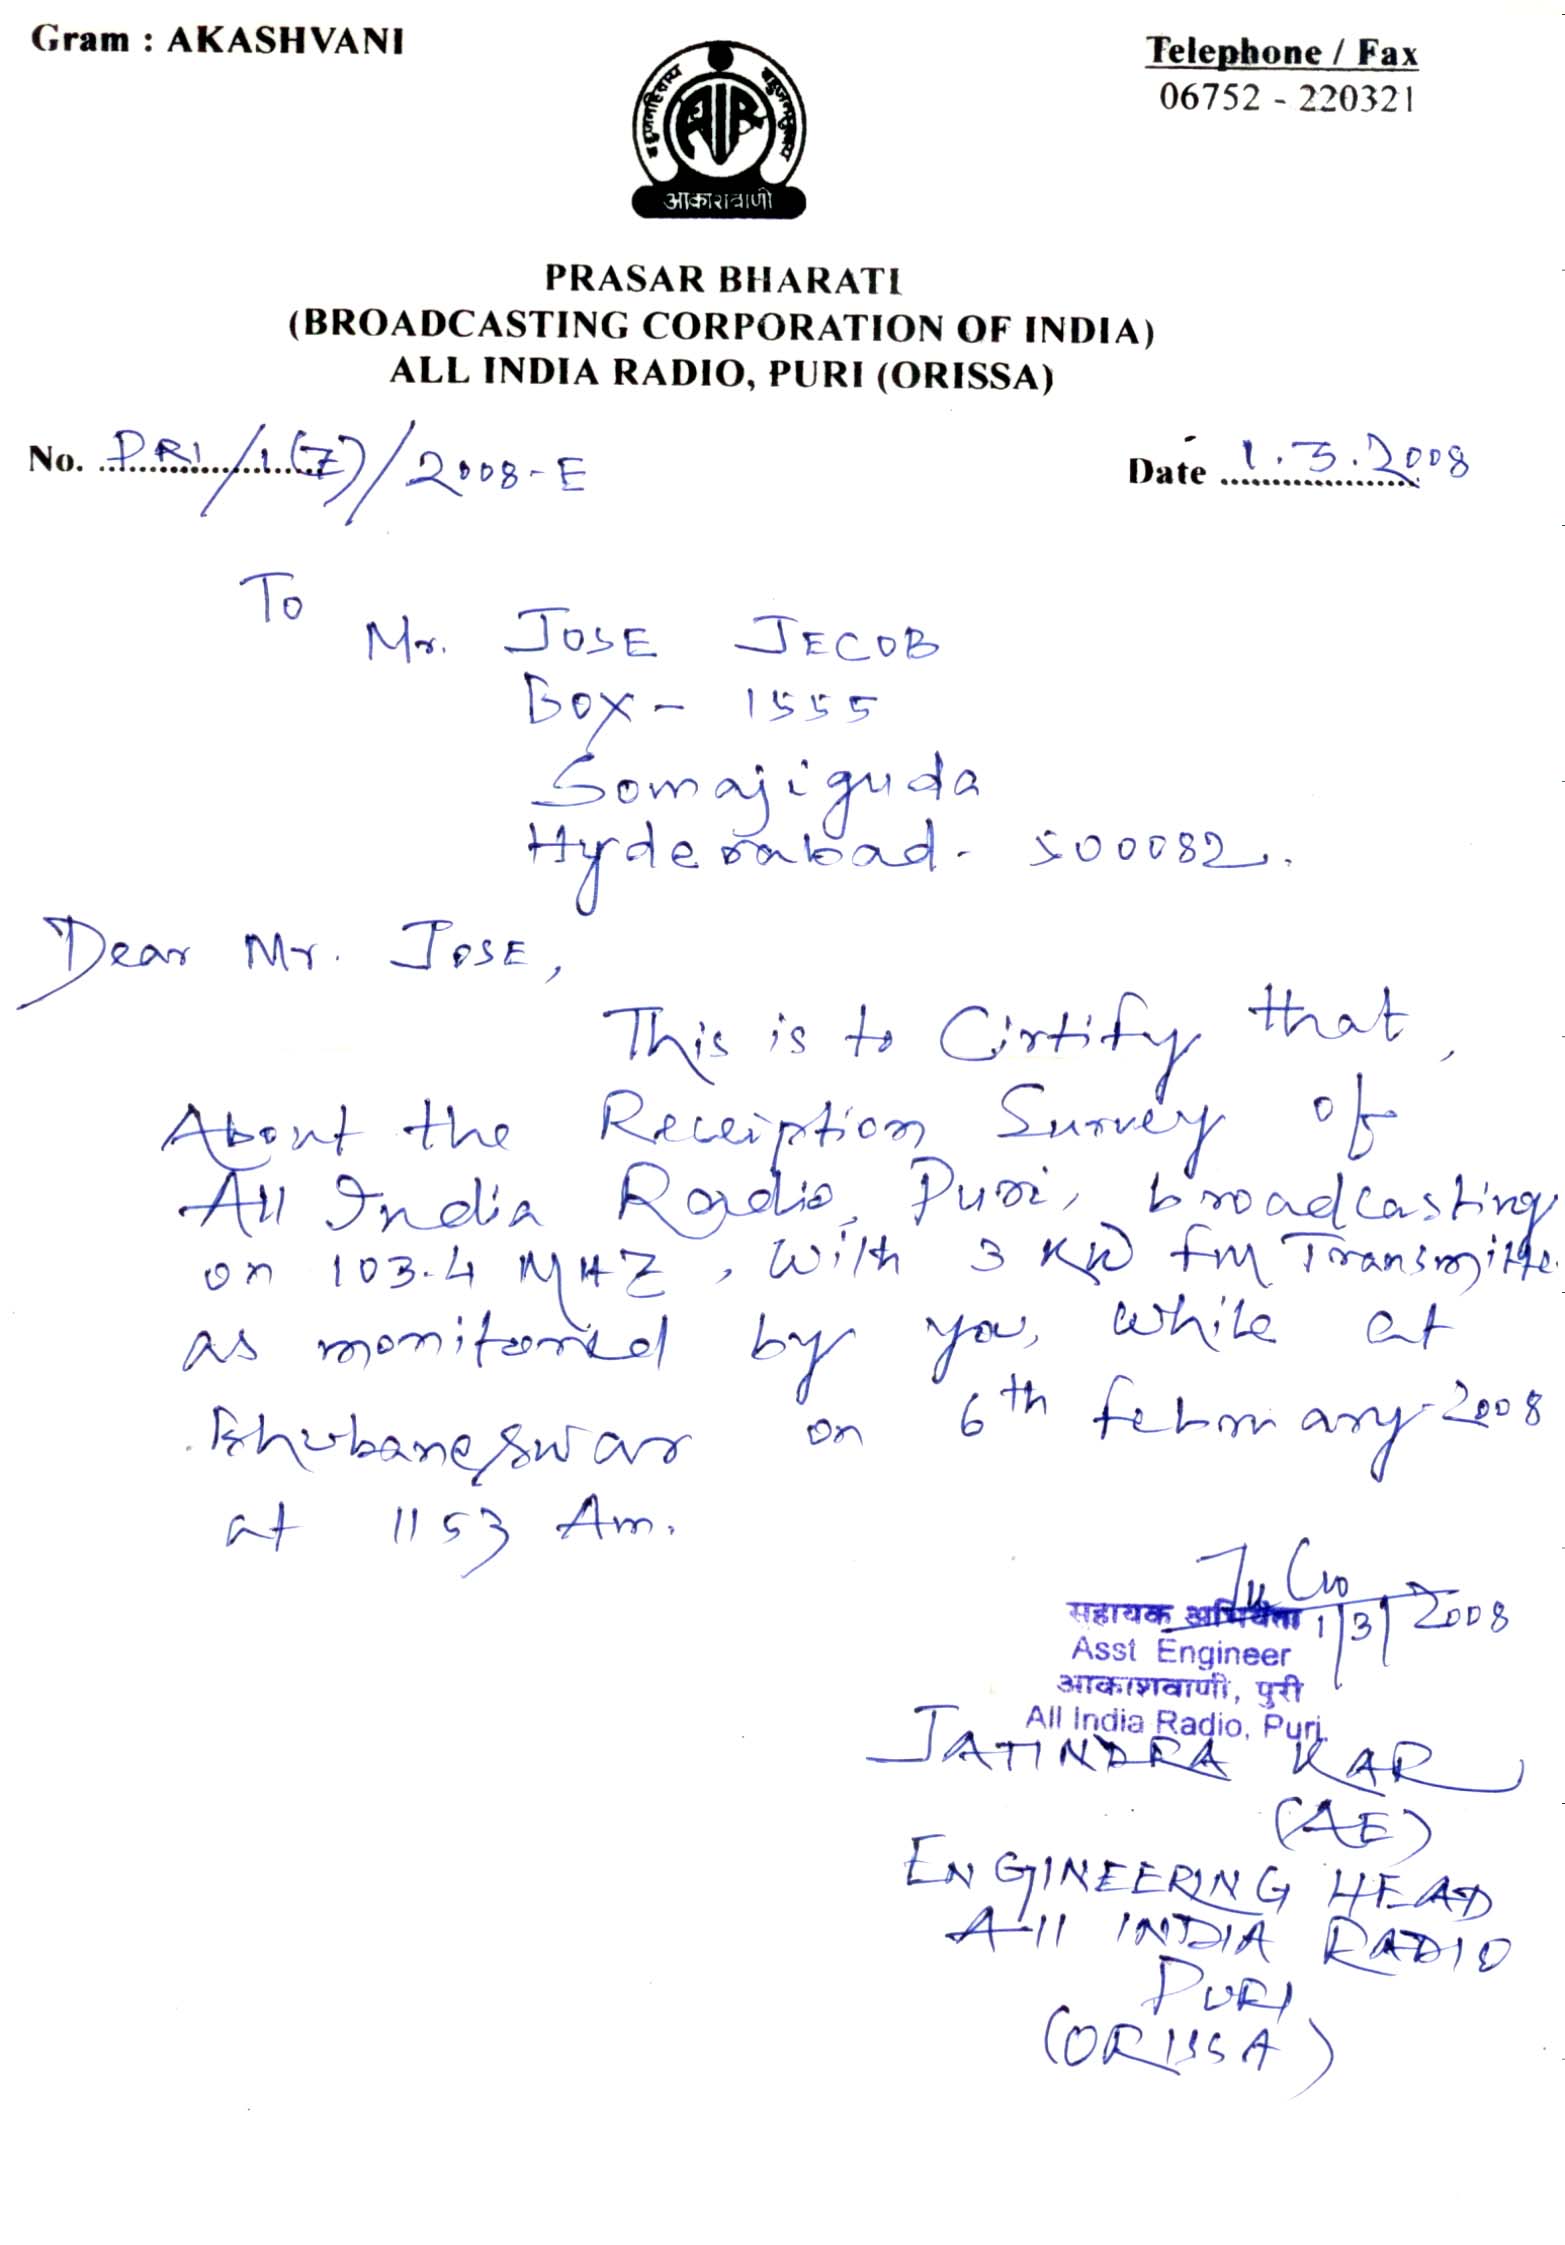 Gram : AKASHVANI
Telephone / Fax
06752 - 220321
बहुजनहिताय बहुजनसुखाय
AIR
आकाशवाणी
PRASAR BHARATI
(BROADCASTING CORPORATION OF INDIA)
ALL INDIA RADIO, PURI (ORISSA)
No. PRI/1(7)/2008-E
Date 1.3.2008
To
Mr. JOSE JECOB
Box - 1555
Somajiguda
Hyderabad - 500082.
Dear Mr. JOSE,
This is to Cirtify that,
About the Receiption Survey of
All India Radio, Puri, broadcasting
on 103.4 MHZ, with 3 KW FM Transmitte.
as monitored by you, while at
Bhubaneswar on 6th February-2008
at 1153 Am.
1/3/2008
सहायक अभियंता
Asst Engineer
आकाशवाणी, पुरी
All India Radio, Puri.
JATINDRA KAR
(AE)
ENGINEERING HEAD
All INDIA RADIO
PURI
(ORISSA)